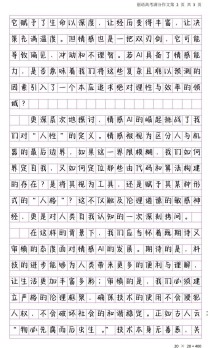 它赋予了生命以深度，让经历变得丰富，让决
策充满温度。但情感也是一把双刃剑，它可能
导致偏见、冲动和不理智。若AI具备了情感能
力，是否意味着我们将这些复杂且难以预测的
因素引入了一个本应追求绝对理性与效率的领
域？
更深层次地探讨，情感AI的崛起挑战了我
们对“人性”的定义。情感被视为人类与机
器的最后边界，如果这一界限模糊，我们如何
界定自我，又如何定位那些由代码和算法构建
的存在？是将其视为工具，还是赋予其某种形
式的“人格”？这不仅触及伦理道德的敏感神
经，更是对人类自我认知的一次深刻拷问。
在这样的背景下，我们应当怀着既期待又
审慎的态度面对情感AI的发展。期待的是，科
技的进步能够为人类带来更多的便利与理解，让
生活更加丰富多彩；审慎的是，我们必须建
立严格的伦理框架，确保技术的使用不会侵犯
人权，不会破坏社会的和谐稳定。正如古人云：
“物必先腐而后虫生。”技术本身无善恶，关
20 × 20 = 400